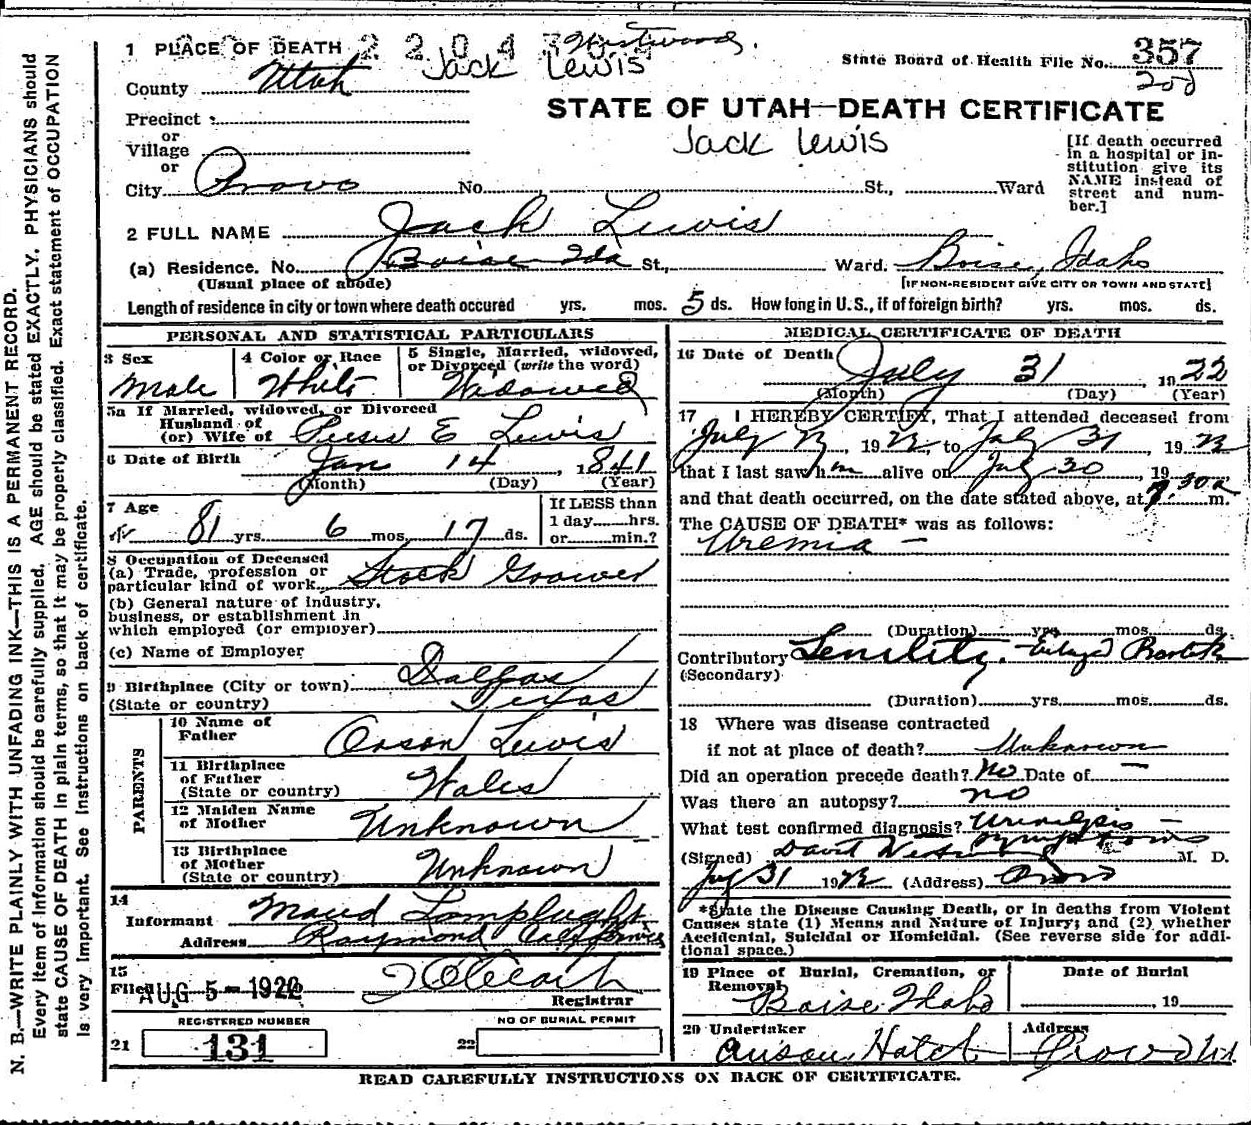 N. B.—WRITE PLAINLY WITH UNFADING INK—THIS IS A PERMANENT RECORD.
Every item of information should be carefully supplied. AGE should be stated EXACTLY. PHYSICIANS should
state CAUSE OF DEATH in plain terms, so that it may be properly classified. Exact statement of OCCUPATION
is very important. See instructions on back of certificate.
1 PLACE OF DEATH
Jack Lewis
State Board of Health File No. 357
County Utah
STATE OF UTAH—DEATH CERTIFICATE
Jack Lewis
Precinct
or
Village
or
City Provo No. St., Ward
[If death occurred
in a hospital or in-
stitution give its
NAME instead of
street and num-
ber.]
2 FULL NAME Jack Lewis
(a) Residence. No. Boise Ida St., Ward. Boise, Idaho
(Usual place of abode) [IF NON-RESIDENT GIVE CITY OR TOWN AND STATE]
Length of residence in city or town where death occured yrs. mos. 5 ds. How long in U.S., if of foreign birth? yrs. mos. ds.
PERSONAL AND STATISTICAL PARTICULARS
3 Sex 4 Color or Race 5 Single, Married, widowed,
or Divorced (write the word)
Male White Widowed
5a If Married, widowed, or Divorced
Husband of
(or) Wife of E Lewis
6 Date of Birth Jan 14, 1841
(Month) (Day) (Year)
7 Age 81 yrs. 6 mos. 17 ds.
If LESS than
1 day hrs.
or min.?
8 Occupation of Deceased
(a) Trade, profession or
particular kind of work Stock Grower
(b) General nature of industry,
business, or establishment in
which employed (or employer)
(c) Name of Employer
9 Birthplace (City or town) Dallas
(State or country) Texas
PARENTS
10 Name of
Father Orson Lewis
11 Birthplace
of Father
(State or country) Wales
12 Maiden Name
of Mother Unknown
13 Birthplace
of Mother
(State or country) Unknown
14
Informant Maud Lamplught
Address Raymond California
15
Filed AUG 5 - 1922
Registrar
REGISTERED NUMBER
21 131
NO OF BURIAL PERMIT
22
MEDICAL CERTIFICATE OF DEATH
16 Date of Death July 31, 1922
(Month) (Day) (Year)
17 I HEREBY CERTIFY, That I attended deceased from
July, 1922, to July 31, 1922
that I last saw him alive on July 30, 19
and that death occurred, on the date stated above, at 30a m.
The CAUSE OF DEATH* was as follows:
Uremia —
(Duration) yrs. mos. ds.
Contributory Senility. Enlarged Prostate
(Secondary)
(Duration) yrs. mos. ds.
18 Where was disease contracted
if not at place of death? Unknown
Did an operation precede death? No Date of —
Was there an autopsy? no
What test confirmed diagnosis? Urinalysis —
symptoms
(Signed) M. D.
July 31 1922 (Address) Provo
*State the Disease Causing Death, or in deaths from Violent
Causes state (1) Means and Nature of Injury; and (2) whether
Accidental, Suicidal or Homicidal. (See reverse side for addi-
tional space.)
19 Place of Burial, Cremation, or
Removal Boise Idaho
Date of Burial
, 19
20 Undertaker
Anson Hatch
Address
Provo Ut.
READ CAREFULLY INSTRUCTIONS ON BACK OF CERTIFICATE.